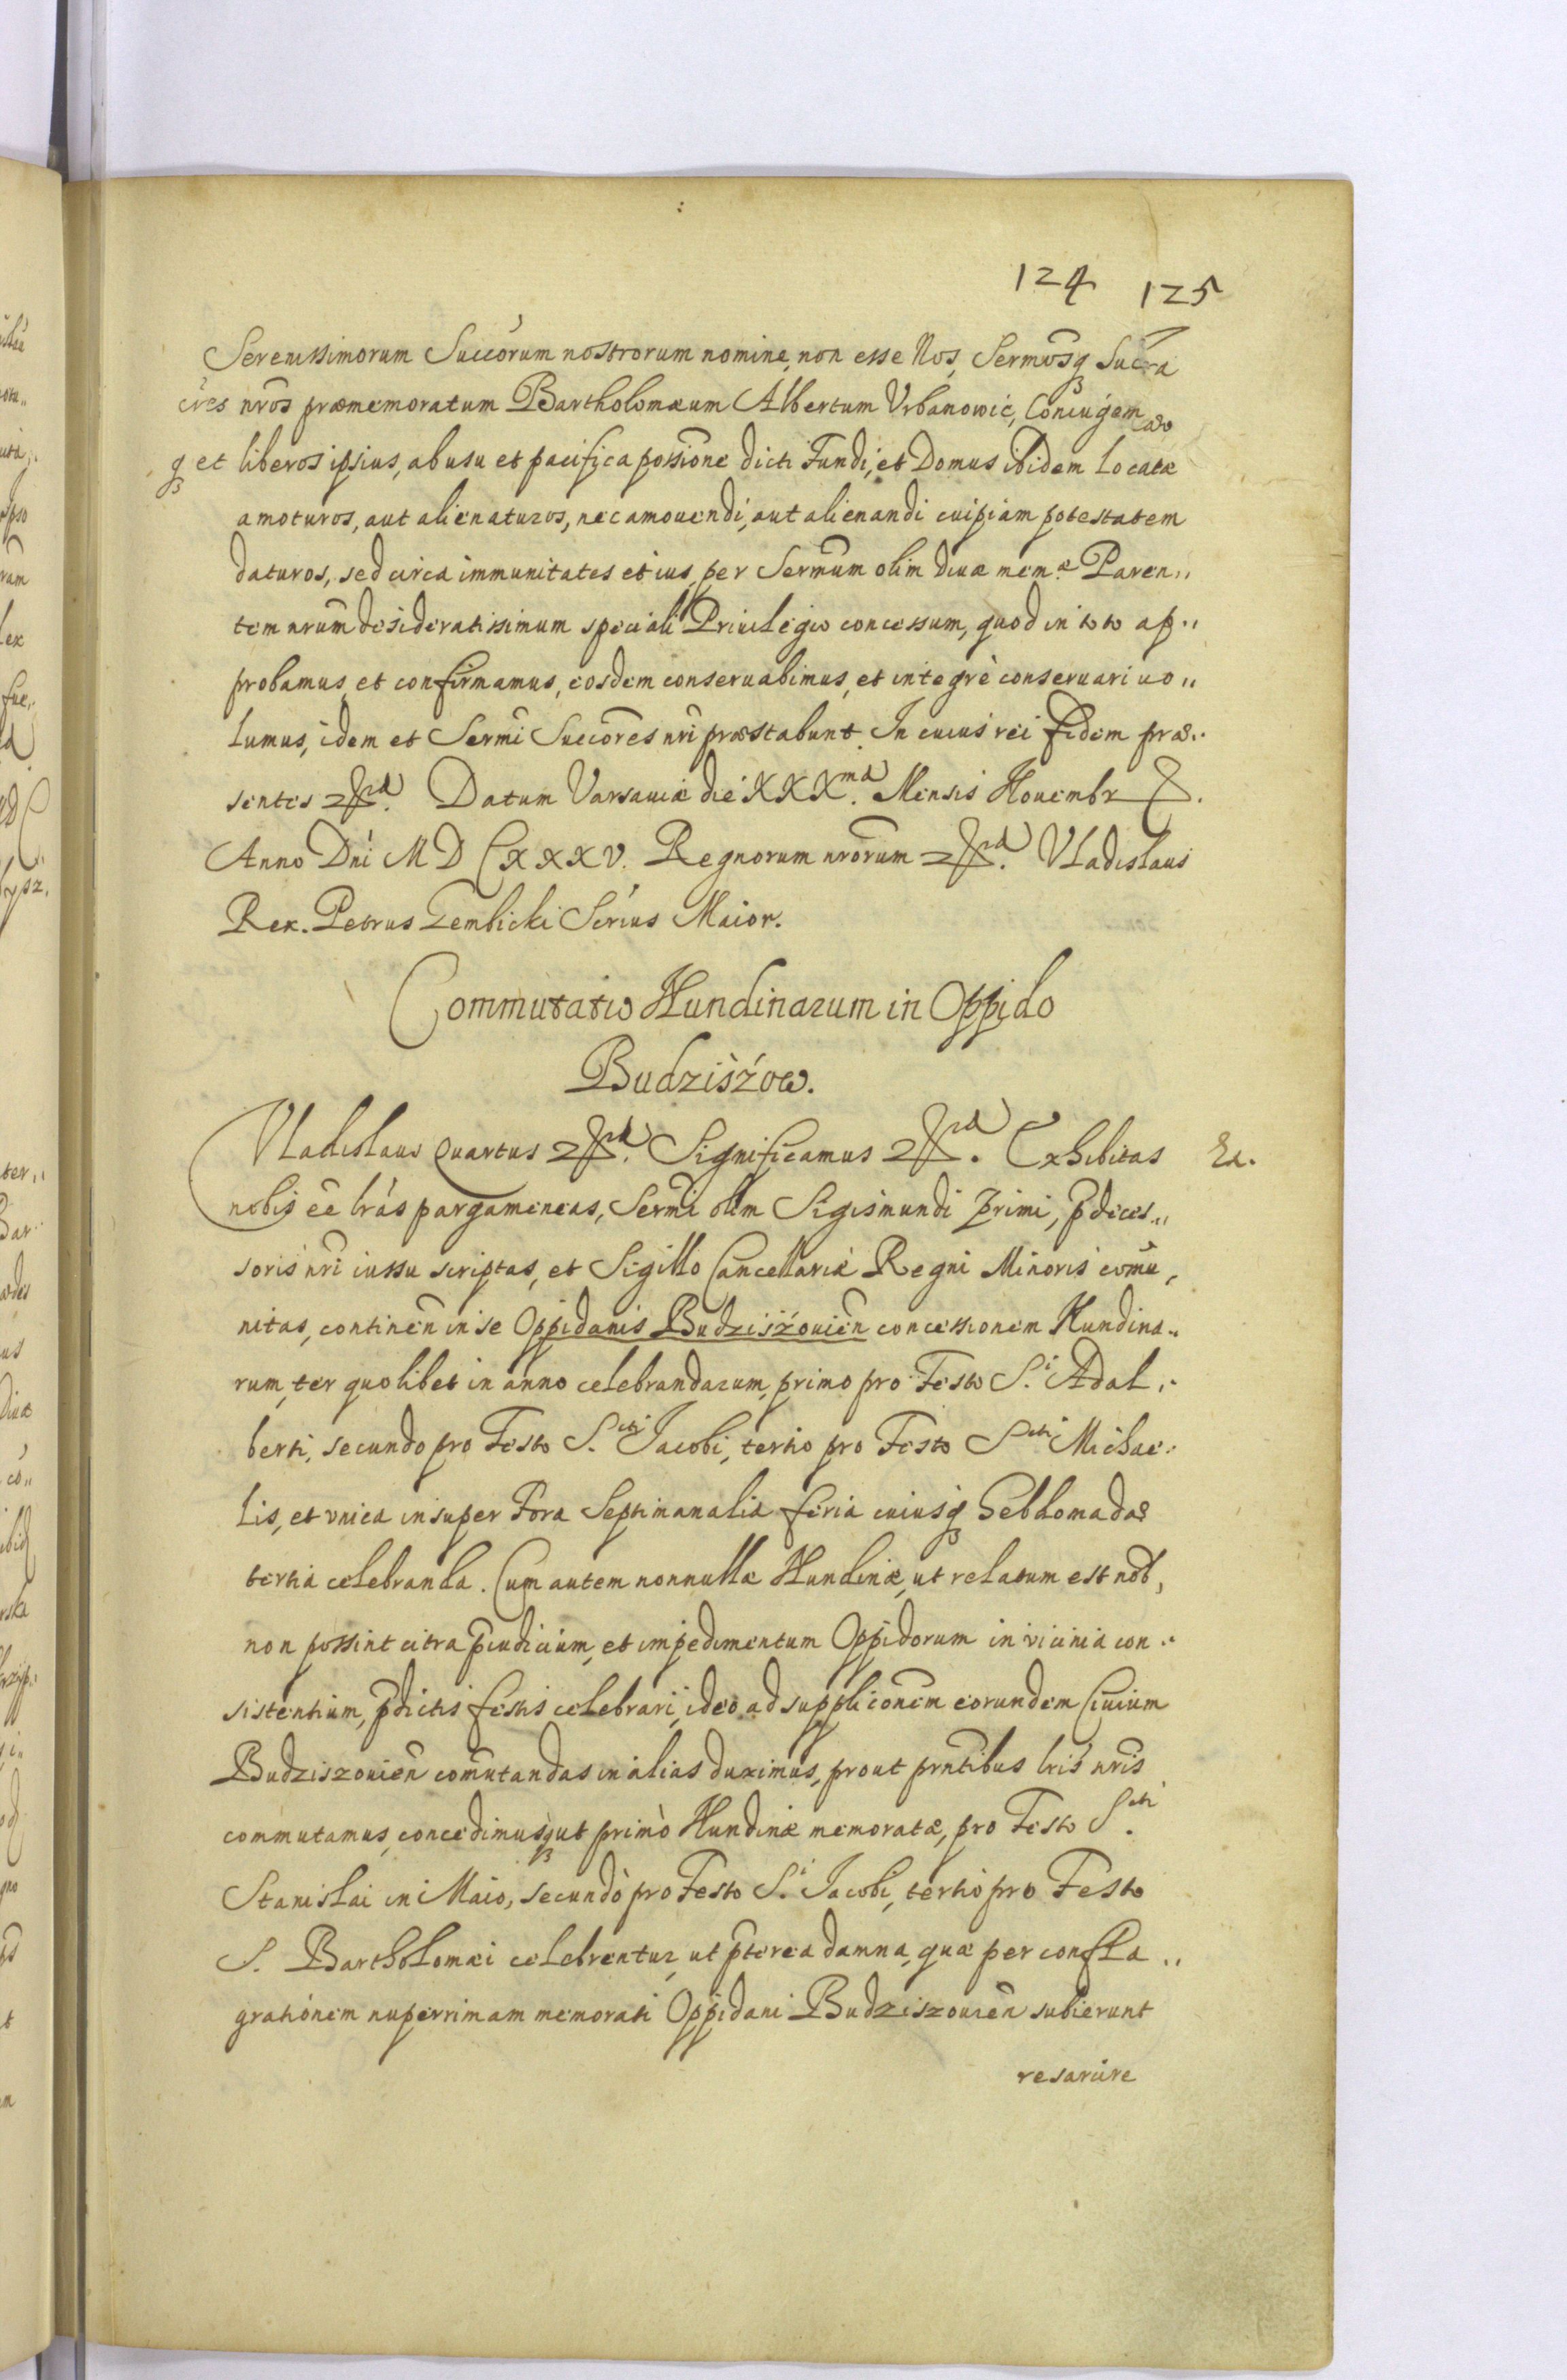 124 125
Serenissimorum Succõrum nostrorum nomine, non esse Nos, Sermõsq Suc
cres nros præmemoratum Bartholomæum Albertum Vrbanowic, Coniugem
q et liberos ipsius, ab usu et pacifica possione dicti Fundi, et Domus ibidem locatæ
amoturos, aut alienaturos, nec amouendi, aut alienandi cuipiam potestatem
daturos, sed circa immunitates et ius, per Sermum olim Diuæ mem.æ Paren„
tem nrum desideratissimum speciali Priuilegio concessum, quod in toto ap„
probamus, et confirmamus, eosdem conseruabimus, et integrè conseruari uo„
lumus, idem et Sermi Succores nri præstabunt. In cuius rei fidem præ„
sentes Datum Varsauiæ die XXX.ma Mensis Nouembr
Anno Dni M D CXXXV. Regnorum nrorum Vladislaus
Rex. Petrus Gembicki Scrius Maior.
Commutatio Nundinarum in Oppido
Budziszow.
Vladislaus quartus Significamus Exhibitas
nobis eẽ lrás pargameneas, Sermi olim Sigismundi primi, p̃deces„
soris nri iussu scriptas, et Sigillo Cancellariæ Regni Minoris comũ,
nitas, continen̄ in se Oppidanis Budziszouien̄ concessionem Nundina„
rum, ter quolibet in anno celebrandarum, primo pro Festo S.i Adal„
berti, secundo pro Festo S.cti Jacobi, tertio pro Festo S.cti Michae„
lis, et vnica insuper Fora Septimanalia feria cuiusq hebdomadæ
tertia celebranda. Cum autem nonnullæ Nundinæ, ut relatum est nob,
non possint citra p̃iudicium, et impedimentum Oppidorum in vicinia con„
sistentium, p̃dictis festis celebrari, ideo ad supplicõnem eorundem Ciuium
Budziszouien̄ com̃utandas in alias duximus, prout prntibus lris nris
commutamus, concedimusq ut primò Nundinæ memoratæ, pro Festo S.cti
Stanislai in Maio, secundò pro Festo S.i Jacobi, tertio pro Festo
S. Bartholomæi celebrentur, ut p̃terea damna, quæ per confla„
grationem nuperrimam memorati Oppidani Budziszouien̄ subierunt
resarcire